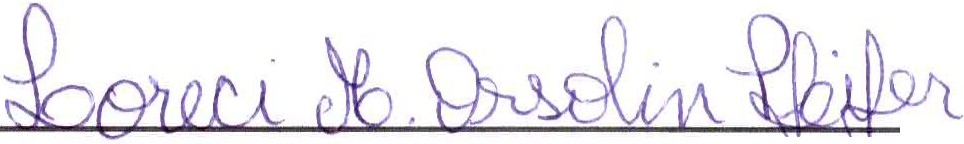 Loreci M. Orsolin Pfeifer